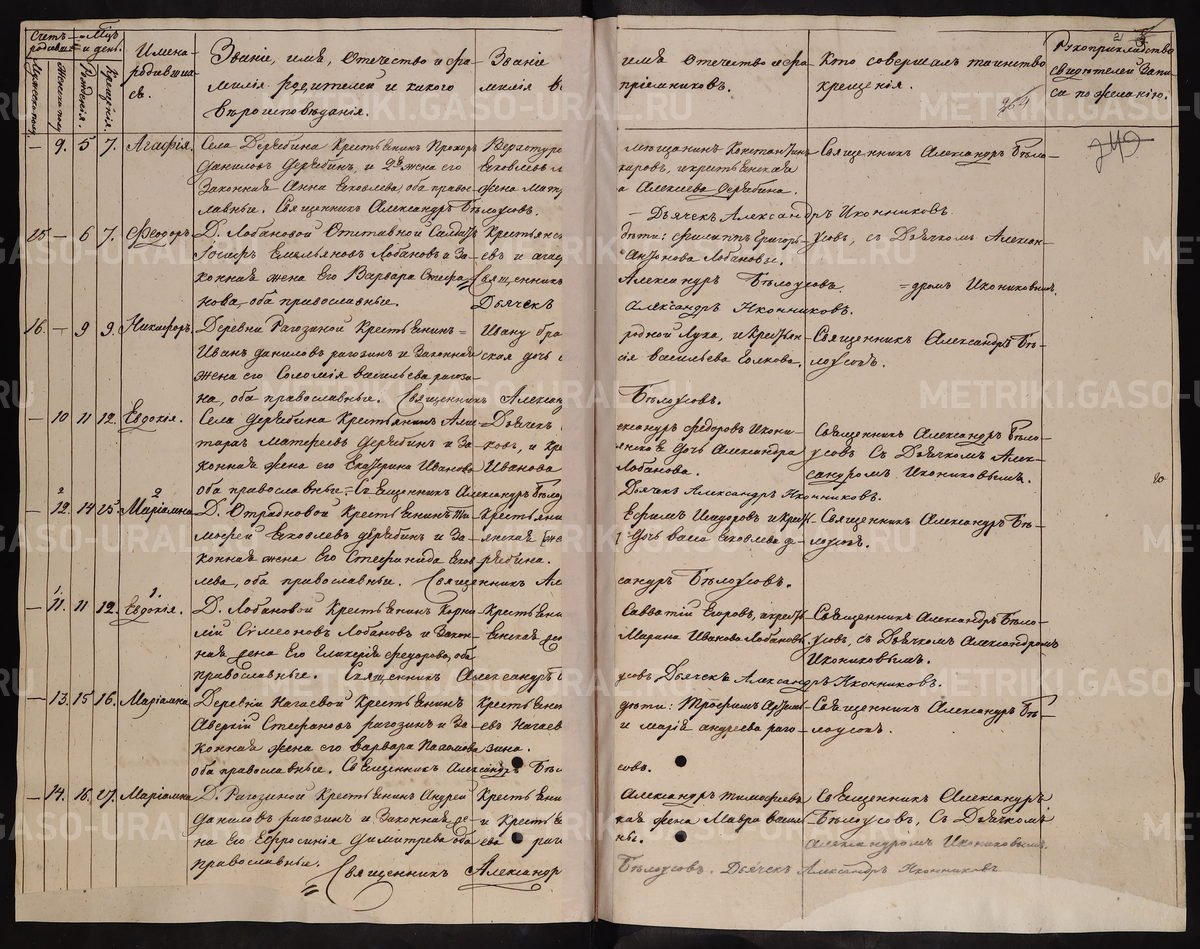 Счетъ родивш
Мѣц и день.
Мужеска полу.
Женска полу
Рожденія.
Крещенія.
Имена родившихся.
Званіе, имя, Отечество и фамилія родителей и какого вѣроисповѣданія.
Званіе
милія
имя отечество и фа
пріемниковъ.
Кто совершалъ таинство крещенія.
Рукоприкладство свидѣтелей записи по желанію.
21
264
249
— 9. 5 7. Агафія.
Села Дерябина Крестьянинъ Прохоръ
Даниловъ Дерябинъ, и 2я жена его
Законная Анна Яковлева, оба право-
славные. Священникъ Александръ Бѣлоусовъ.
Верхотур
Яковлевъ
жена Мат
мѣщанинъ Константинъ
каровъ, и крестьянская
а Алексѣева Дерябина.
— Дьячекъ Александръ Иконниковъ
Священникъ Александръ Бѣло-
15 — 6 7. Феодоръ
Д. Лобановой Отставной Солдатъ
Іосифъ Емельяновъ Лобановъ и За-
конная жена Его Варвара Стефа-
нова, оба православные.
Крестьянс
евъ и ага
Священникъ
Дьячекъ
дѣти: Филиппъ Григорь-
Антонова Лобановы.
Александръ Бѣлоусовъ
Александръ Иконниковъ.
усовъ, съ Дьячкомъ Алексан-
=дромъ Икониковымъ.
16. — 9 9. Никифоръ.
Деревни Рагозиной Крестьянинъ=
Иванъ Даниловъ рагозинъ и Законная
жена его Соломія васильева рагози-
на, оба православные. Священникъ Александ
Ивану бра
ская дочь
родной Лука, и Крестьян-
сія васильева Волкова.
Бѣлоусовъ.
Священникъ Александръ Бѣ-
лоусовъ.
— 10 11 12. Евдокія.
Села Дерябина Крестьянинъ
Матвеевъ Дерябинъ и За-
конная жена его Екатерина Иванова
оба православные. Священникъ Александръ Бѣло
Дьячекъ
ковъ, и Кр
Иванова
ександръ Федоровъ Икони-
янская дочь Александра
Лобанова.
Дьячекъ Александръ Иконниковъ.
Священникъ Александръ Бѣло-
усовъ Съ Дьячкомъ Алек-
сандромъ Икониковымъ.
20
2 2
— 12. 14 25. Маріамна
Д. Отрадновой Крестьянинъ Ти-
мофей Яковлевъ Дерябинъ и За-
конная жена Его Стефанида Яков
лева, оба православные. Священникъ Ал
Крестьяни
янская же
рябина.
Ефимъ Исидоровъ и Крес
Дочь васса Яковлева Де-
сандръ Бѣлоусовъ.
Священникъ Александръ Бѣ-
лоусовъ.
1. 1.
— 11. 11 12. Евдокія.
Д. Лобановой Крестьянинъ Корни-
лій Симеоновъ Лобановъ и Закон-
ная жена Его Гликерія Федорова, оба
православные. Священникъ Александръ
Крестьяни
янская
Савватій Егоровъ, и крест
Марина Иванова Лобановы.
усовъ Дьячекъ Александръ Иконниковъ.
Священникъ Александръ Бѣло-
усовъ, съ Дьячкомъ Александромъ
Икониковымъ.
— 13. 15 16. Маріамна
Деревни Нагаевой Крестьянинъ
Аверкій Стефановъ рагозинъ и За-
конная жена его варвара Пахомова
оба православные. Священникъ Александръ Бѣл
Крестьян
евъ Нагаев
зина.
дѣти: Трофимъ
и марія андреева раго-
совъ.
Священникъ Александръ Бѣ-
лоусовъ.
— 14. 16. 27. Маріамна
Д. Рагозиной Крестьянинъ Андрей
Даниловъ рагозинъ и Законная же-
на Его Ефросинія Димитрева оба
православные.
Священникъ Александр
Крестьяни
и Крестья
ева раг
Александръ тимофеевъ
кая жена Мавра васил
ны.
Бѣлоусовъ. Дьячекъ Александръ Иконниковъ
Священникъ Александръ
Бѣлоусовъ, Съ Дьячкомъ
Александромъ Икониковымъ.
METRIKI.GASO-URAL.RU